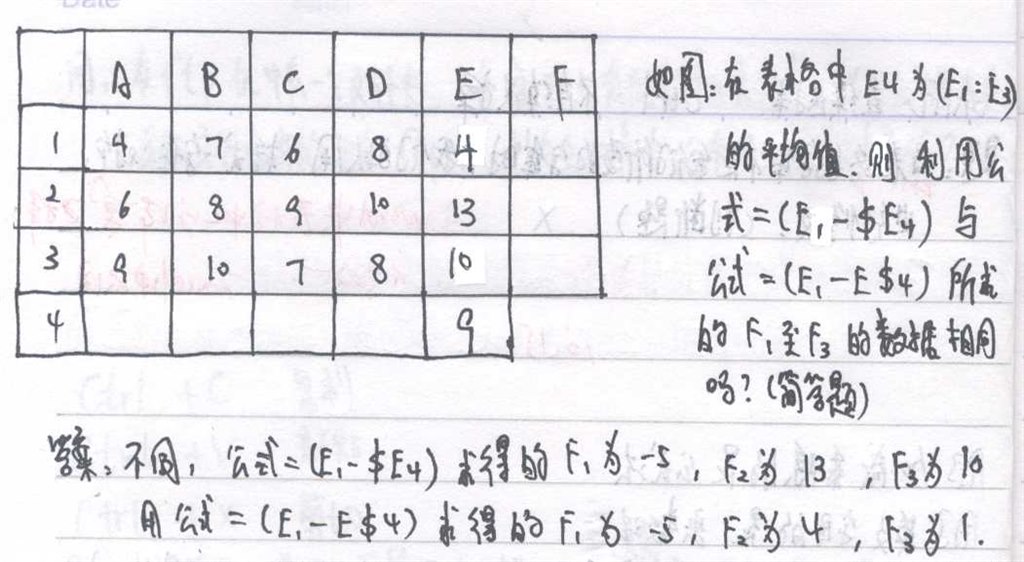 Date
A B C D E F
1 4 7 6 8 4
2 6 8 9 10 13
3 9 10 7 8 10
4 9
如图:在表格中 E4为(E1:E3)
的平均值.则利用公
式=(E1-$E4)与
公式=(E1-E$4)所求
的F1至F3的数据相同
吗?(简答题)
答案:不同,公式=(E1-$E4)求得的F1为-5,F2为13,F3为10
用公式=(E1-E$4)求得的F1为-5,F2为4,F3为1.